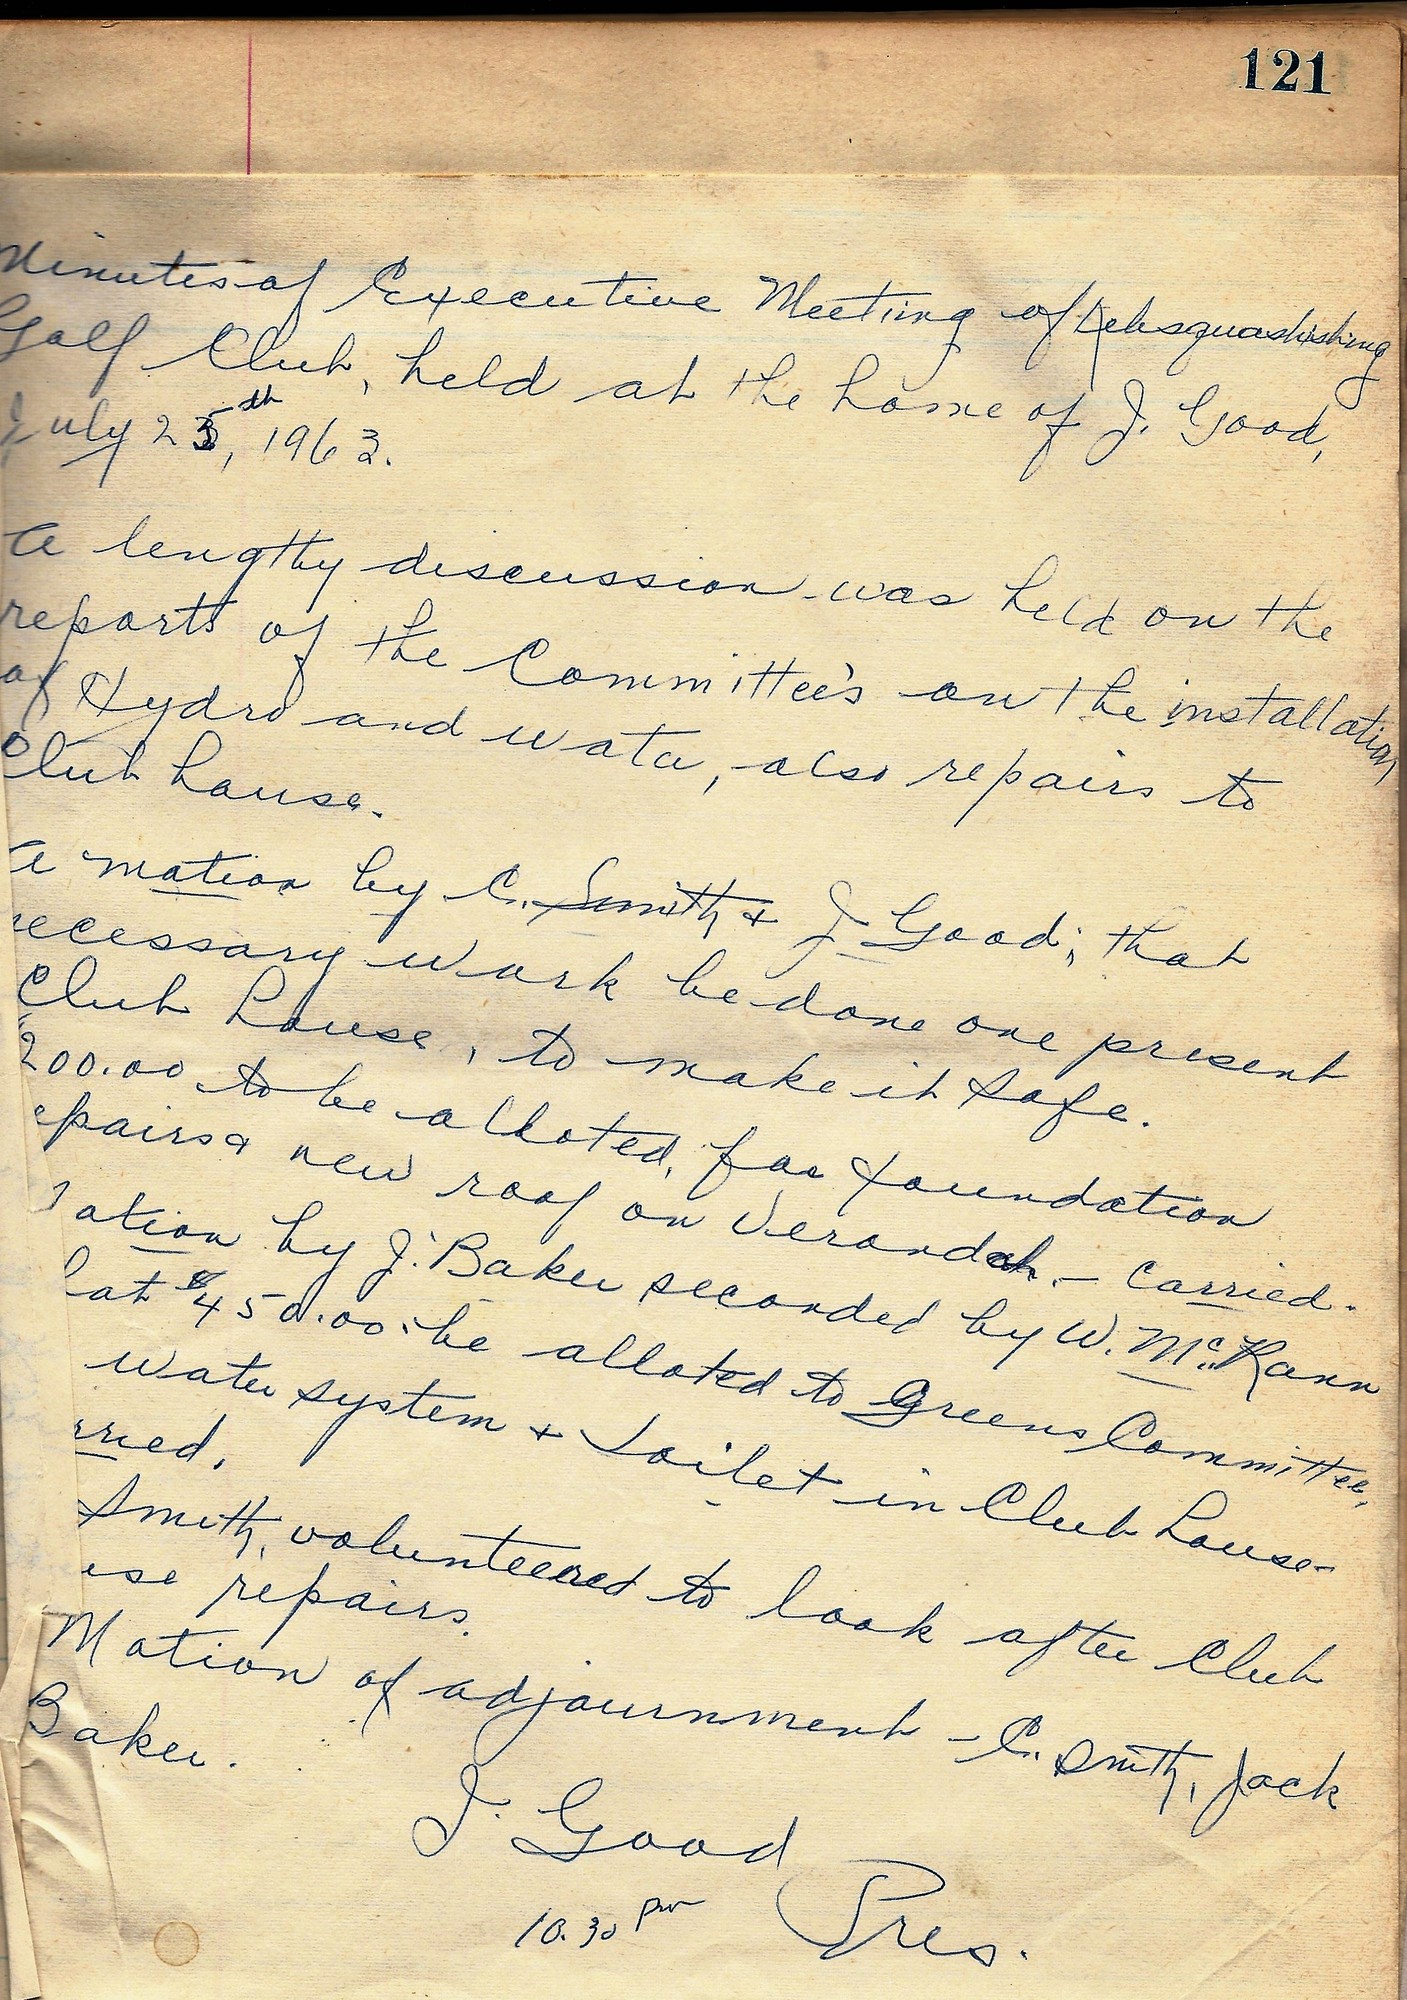 121
Minutes of Executive Meeting of Kebsquasheshing
Golf Club, held at the home of J. Good,
July 25th, 1963.
A lengthy discussion was held on the
reports of the Committee's on the installation
of Hydro and water, also repairs to
Club house.
A motion by C. Smith + J Good; that
necessary work be done one present
Club house, to make it safe.
200.00 to be alloted, for foundation
epairs & new roof on Verandah. - carried.
otion by J. Baker seconded by W. McKann
hat $450.00 be alloted to Greens Committee,
water system + toilet in Club house
rried.
Smith, volunteered to look after Club
use repairs.
Motion of adjournment - C. Smith, Jack
Baker.
J. Good
10.30 pm Pres.